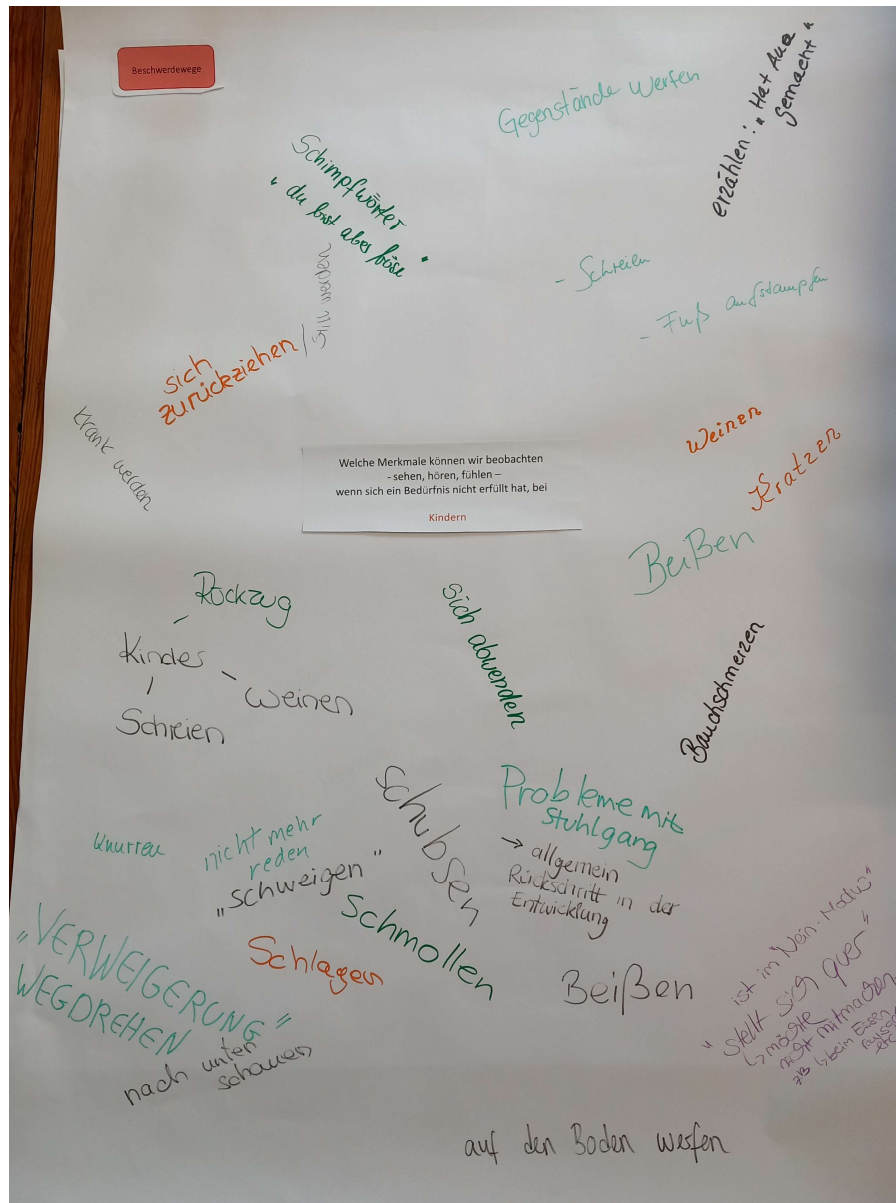 Beschwerdewege
Gegenstände werfen
erzählen: "Hat Aua
gemacht"
Schimpfwörter
"du bist aber böse"
- Schreien
- Fuß aufstampfen
sich
zurückziehen /
Still werden
Krank werden
Weinen
Kratzen
Welche Merkmale können wir beobachten
- sehen, hören, fühlen –
wenn sich ein Bedürfnis nicht erfüllt hat, bei
Kindern
Beißen
Rückzug
Kindes
Weinen
Schreien
Sich abwenden
Bauchschmerzen
Schubsen
Probleme mit
Stuhlgang
→ allgemein
Rückschritt in der
Entwicklung
Knurren
nicht mehr
reden
„schweigen"
Schmollen
Schlagen
„VERWEIGERUNG"
WEGDREHEN
nach unten
schauen
Beißen
ist im Nein-Modus
"stellt sich quer"
↳ möchte
nicht mitmachen
zB ↳ beim Essen
etc
auf den Boden werfen